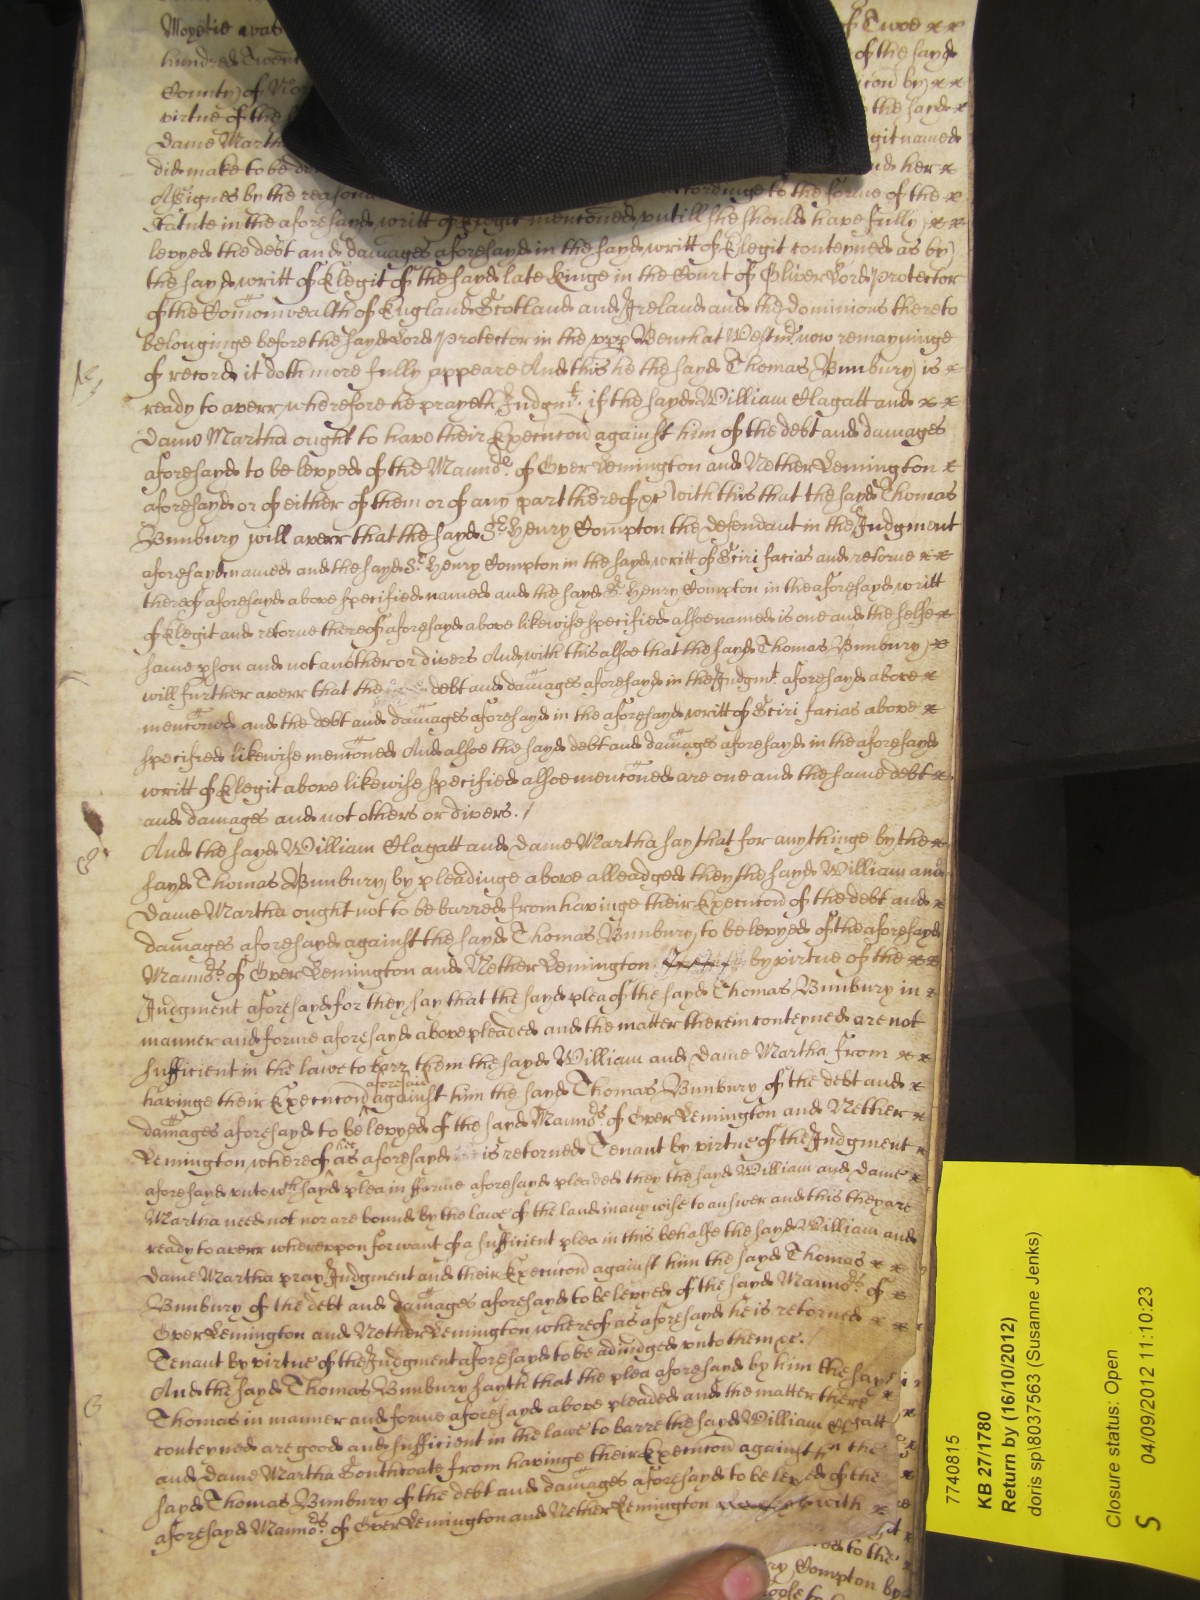 Moyetie was of Twoe
hundred Twent of the sayd
County of No by
virtue of the the sayd
Dame Marth named
did make to be de and her
Assignes by the reasona accordinge to the forme of the
Statute in the aforesayd writt of Elegit mentioned untill she should have fully
levyed the debt and damages aforesayd in the sayd writt of Elegit conteyned as by
the sayd writt of Elegit of the sayd late Kinge in the Court of Oliver Lord Protector
of the Comonwealth of England Scotland and Ireland and the Dominions thereto
belonginge before the sayd Lord Protector in the upp Bench at Westmr now remayninge
of record it doth more fully appeare And this he the sayd Thomas Bunbury is
ready to averr wherefore he prayeth Judgmt. if the sayd William Clagatt and
Dame Martha ought to have their Execucon against him of the debt and damages
aforesayd to be levyed of the Mannors. of Over Lemington and Nether Lemington
aforesayd or of either of them or of any part thereof &c With this that the sayd Thomas
Bunbury will averr that the sayd Sr. Henry Compton the defendant in the Judgment
aforesayd named and the sayd Sr. Henry Compton in the sayd writt of Sciri facias and retorne
thereof aforesayd above specified named and the sayd Sr. Henry Compton in the aforesayd writt
of Elegit and retorne thereof aforesayd above likewise specified alsoe named is one and the selfe
same pson and not another or divers And with this alsoe that the sayd Thomas Bunbury
will further averr that the debt and damages aforesayd in the Judgmt. aforesayd above
menconed and the debt and damages aforesayd in the aforesayd writt of Sciri facias above
specified likewise menconed And alsoe the sayd debt and damages aforesayd in the aforesayd
writt of Elegit above likewise specified alsoe menconed are one and the same debt
and damages and not others or divers. /
And the sayd William Clagatt and Dame Martha say that for any thinge by the
sayd Thomas Bunbury by pleadinge above alleadged they the sayd William and
Dame Martha ought not to be barred from havinge their Execucon of the debt and
damages aforesayd against the sayd Thomas Bunbury to be levyed of the aforesayd
Mannors. of Over Lemington and Nether Lemington by virtue of the
Judgment aforesayd for they say that the sayd plea of the sayd Thomas Bunbury in
manner and forme aforesayd above pleaded and the matter therein conteyned are not
sufficient in the lawe to barr them the sayd William and Dame Martha from
aforesaid
havinge their Execucon against him the sayd Thomas Bunbury of the debt and
damages aforesayd to be levyed of the sayd Mannors. of Over Lemington and Nether
hee
Lemington whereof as aforesayd is retorned Tenant by virtue of the Judgment
aforesayd unto wch sayd plea in forme aforesayd pleaded they the sayd William and Dame
Martha need not nor are bound by the lawe of the land in any wise to answer and this they are
ready to averr whereupon for want of a sufficient plea in this behalfe the sayd William and
Dame Martha pray Judgment and their Execucon against him the sayd Thomas
Bunbury of the debt and damages aforesayd to be levyed of the sayd Mannors. of
Over Lemington and Nether Lemington whereof as aforesayd he is retorned
Tenant by virtue of the Judgment aforesayd to be adiudged unto them &c. /
And the sayd Thomas Bunbury sayth that the plea aforesayd by him the sayd
Thomas in manner and forme aforesayd above pleaded and the matter there
conteyned are good and sufficient in the lawe to barre the sayd William Clagatt
and Dame Martha Southcoate from havinge their Execucon against the
sayd Thomas Bunbury of the debt and damages aforesayd to be levyed of the
aforesayd Mannors. of Over Lemington and Nether Lemington with
to the
ry Compton by
7740815
KB 27/1780
Return by (16/10/2012)
doris sp\8037563 (Susanne Jenks)
Closure status: Open
04/09/2012 11:10:23
S